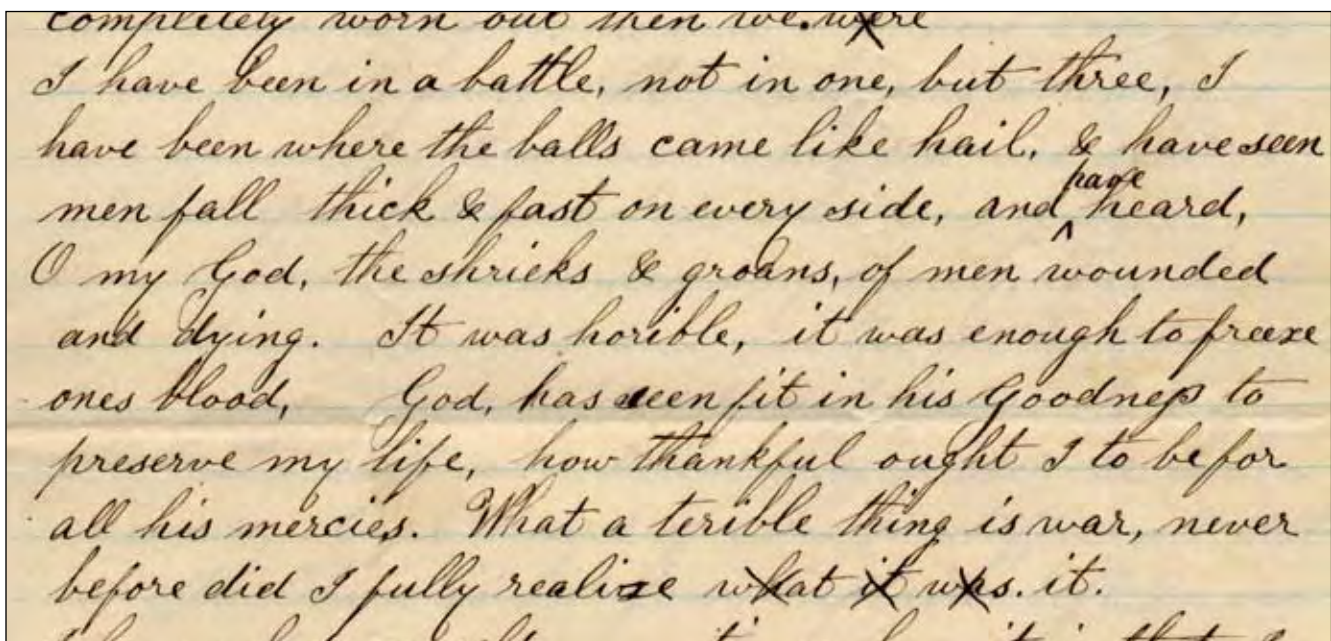 completely worn out then we. were
I have been in a battle, not in one, but three, I
have been where the balls came like hail, & have seen
men fall thick & fast on every side, and have heard,
O my God, the shrieks & groans, of men wounded
and dying. It was horible, it was enough to freeze
ones blood, God, has seen fit in his Goodness to
preserve my life, how thankful ought I to be for
all his mercies. What a terible thing is war, never
before did I fully realize what it was. it.